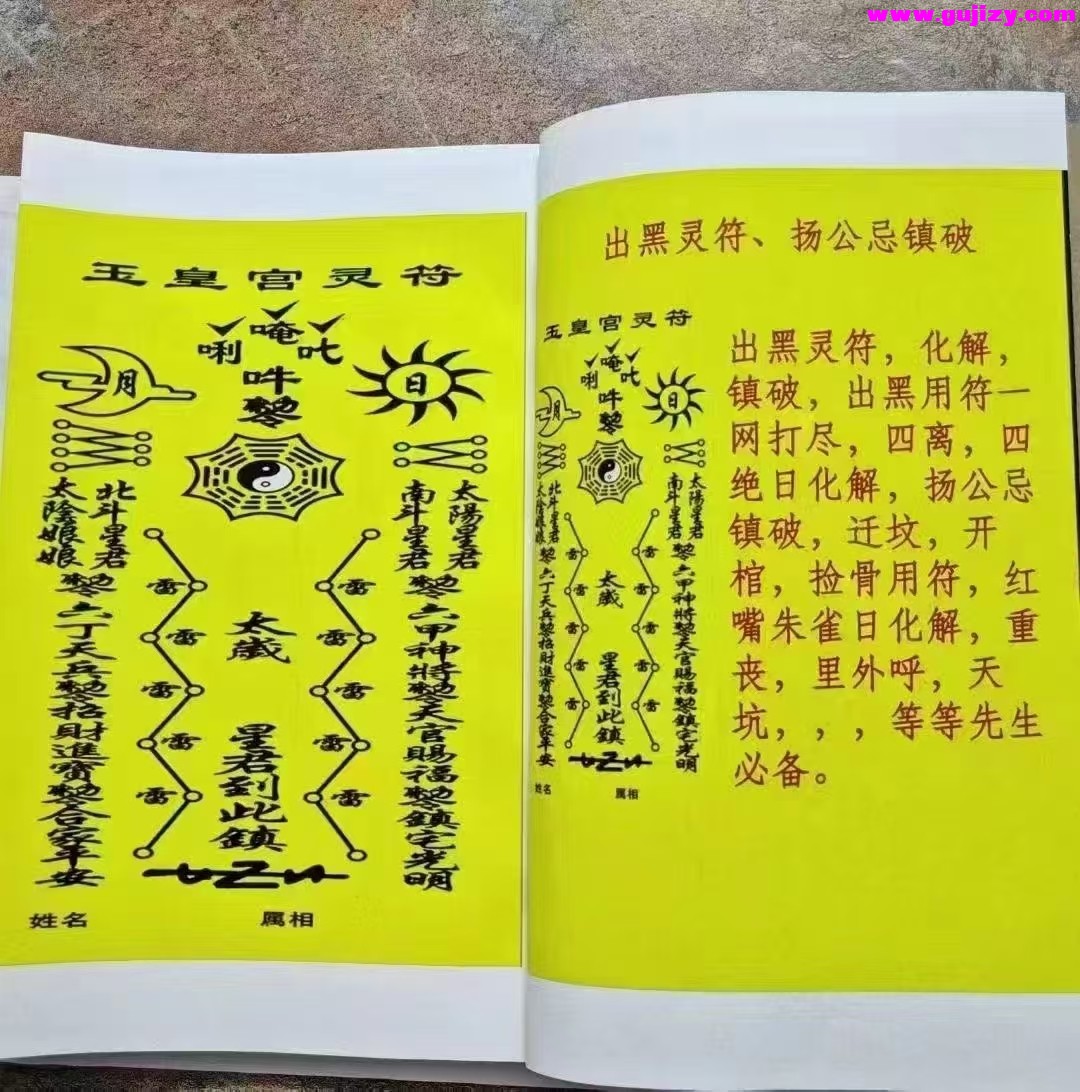 www.gujizy.com
玉皇宫灵符
唵
唎 吒
吽
月
日
太陰娘娘
北斗星君
南斗星君
太陽星君
六丁天兵 招財進寶 合家平安
雷 雷
雷 雷
雷 雷
雷 雷
雷 雷
太歲
星君到此鎮
六甲神將 天官賜福 鎮宅光明
姓名 属相
出黑灵符、扬公忌镇破
玉皇宫灵符
唵
唎 吒
吽
月
日
太陰娘娘
北斗星君
南斗星君
太陽星君
六丁天兵 招財進寶 合家平安
雷 雷
雷 雷
雷 雷
雷 雷
雷 雷
太歲
星君到此鎮
六甲神將 天官賜福 鎮宅光明
姓名 属相
出黑灵符，化解，
镇破，出黑用符一
网打尽，四离，四
绝日化解，扬公忌
镇破，迁坟，开
棺，捡骨用符，红
嘴朱雀日化解，重
丧，里外呼，天
坑，，，等等先生
必备。